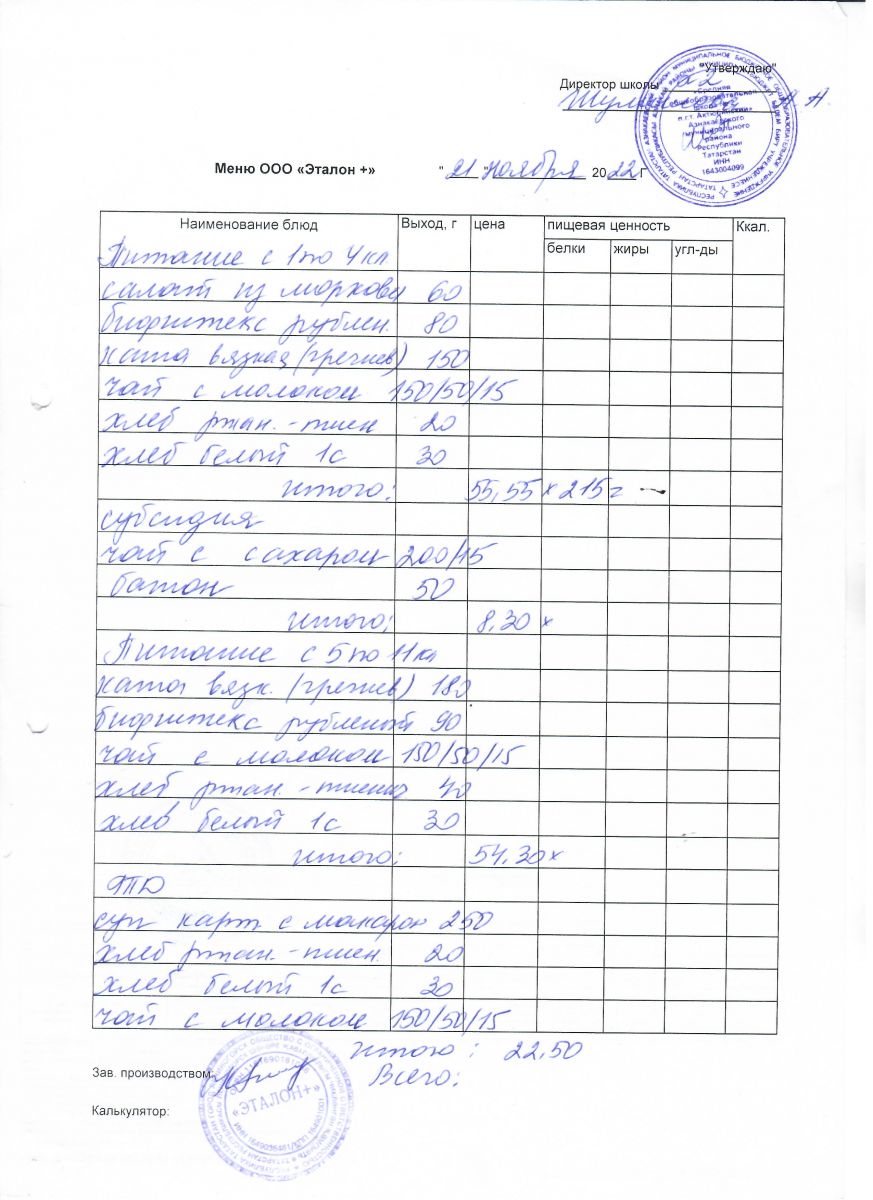 "Утверждаю"
Директор школы
Меню ООО «Эталон +» "21" ноября 2022 г
Наименование блюд Выход, г цена пищевая ценность Ккал.
белки жиры угл-ды
Питание с 1 по 4 кл
салат из моркови 60
бифштекс рублен. 80
каша вязкая (гречнев) 150
чай с молоком 150/50/15
хлеб ржан.-пшен 20
хлеб белый 1с 30
итого: 55,55 х 215г
субсидия
чай с сахаром 200/15
батон 50
итого: 8,30 х
Питание с 5 по 11 кл
каша вязк. (гречнев) 180
бифштекс рубленый 90
чай с молоком 150/50/15
хлеб ржан.-пшенич 40
хлеб белый 1с 30
итого: 54,30 х
суп карт с макарон 250
хлеб ржан.-пшен. 20
хлеб белый 1с 30
чай с молоком 150/50/15
итого: 22,50
Зав. производством:
Всего:
Калькулятор:
«Средняя
общеобразовательная
школа
п.г.т. Актюбинский»
Азнакаевского
муниципального
района
Республики
Татарстан
ИНН
1643004099
«ЭТАЛОН+»